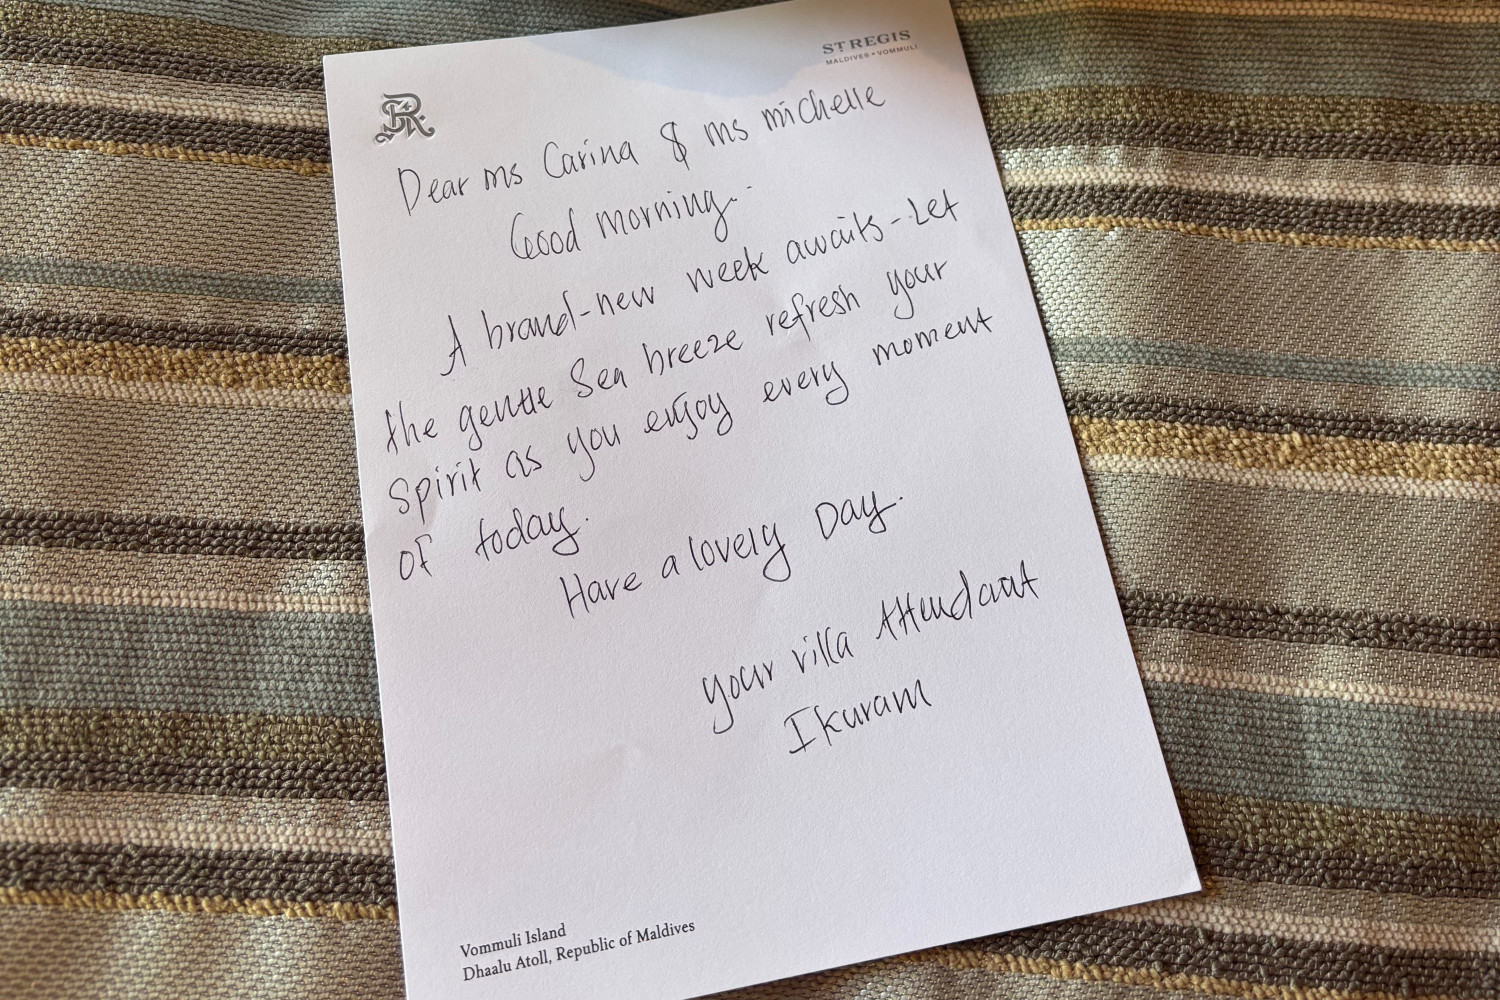 ST REGIS
MALDIVES • VOMMULI
Dear ms Carina & ms michelle
Good morning..
A brand-new week awaits - Let
the gentle Sea breeze refresh your
Spirit as you enjoy every moment
of today.
Have a lovely Day.
your villa Attendant
Ikuram
Vommuli Island
Dhaalu Atoll, Republic of Maldives